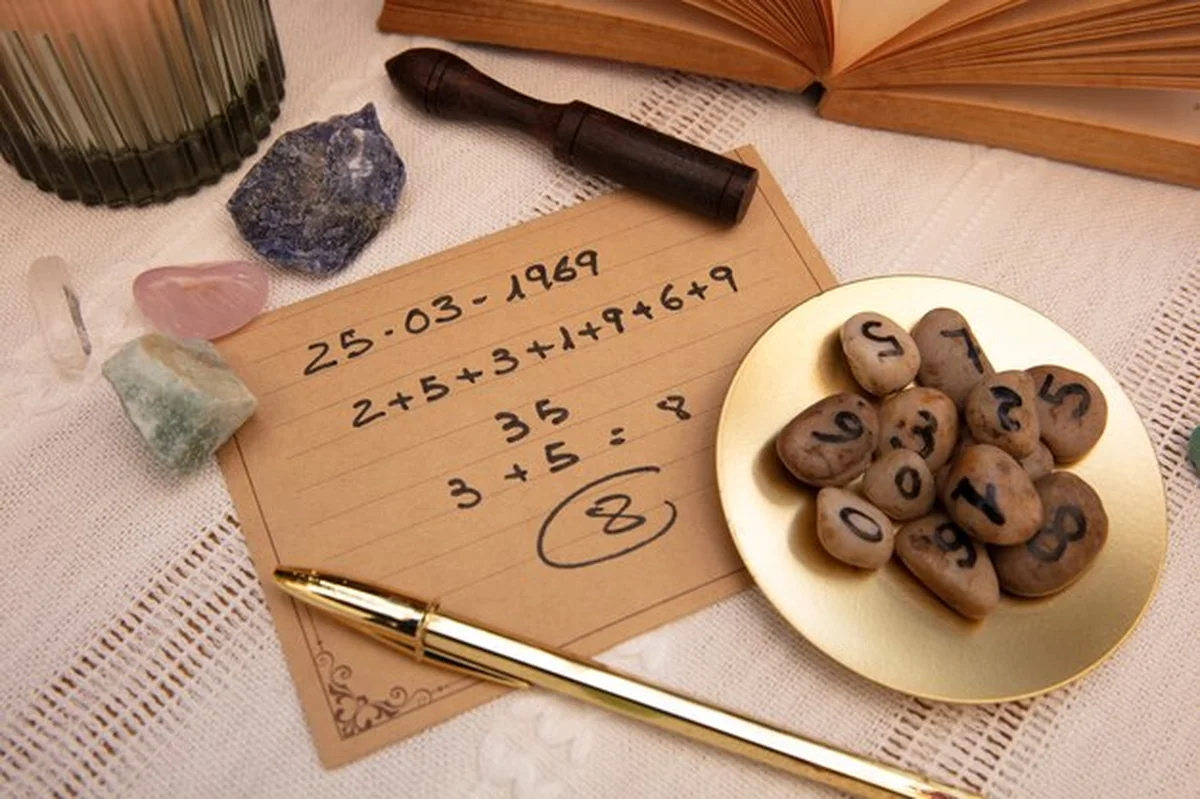 25-03-1969
2+5+3+1+9+6+9
35
3+5=8
8
5
7
5
2
6
3
0
1
0
6
8